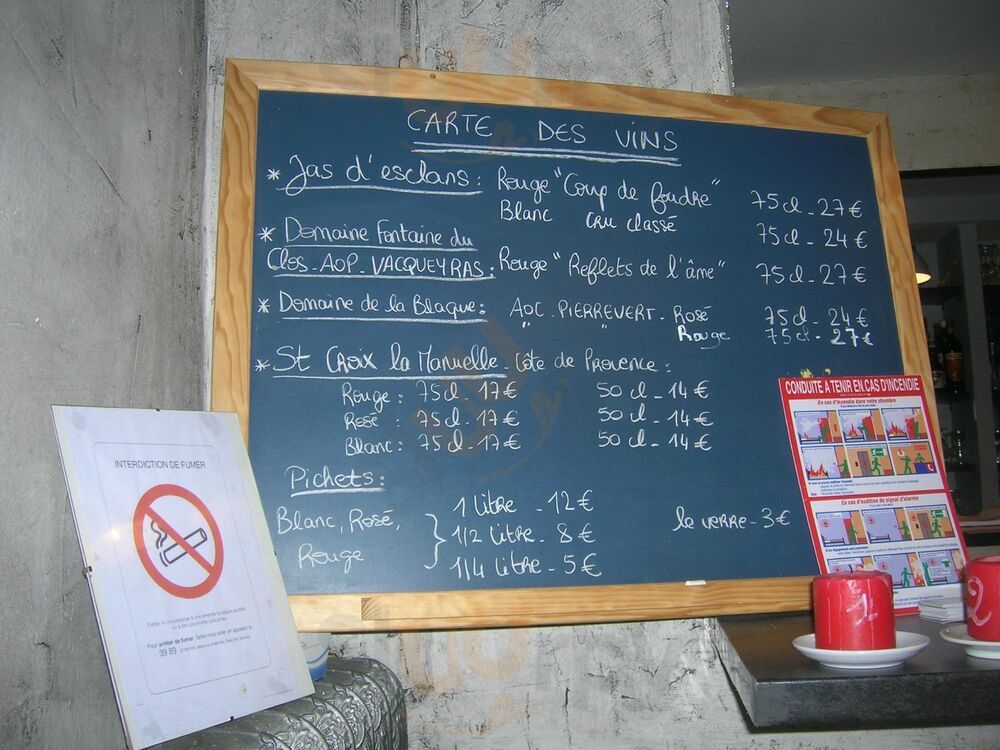 CARTE DES VINS
* Jas d'esclans : Rouge "Coup de foudre" 75 cl - 27 €
Blanc CRU classé 75 cl - 24 €
* Domaine Fontaine du
Clos - AOP - VACQUEYRAS : Rouge "Reflets de l'âme" 75 cl - 27 €
* Domaine de la Blaque : AOC - PIERREVERT - Rosé 75 cl - 24 €
" " Rouge 75 cl - 27 €
* St CROIX la Manuelle - Côte de Provence :
Rouge : 75 cl - 17 € 50 cl - 14 €
Rosé : 75 cl - 17 € 50 cl - 14 €
Blanc : 75 cl - 17 € 50 cl - 14 €
Pichets :
Blanc, Rosé, Rouge } 1 litre - 12 €
1/2 litre - 8 €
1/4 litre - 5 €
le verre - 3 €
INTERDICTION DE FUMER
Pour arrêter de fumer, faites-vous aider en appelant le
39 89
CONDUITE A TENIR EN CAS D'INCENDIE
En cas d'incendie dans votre chambre
En cas d'audition du signal d'alarme